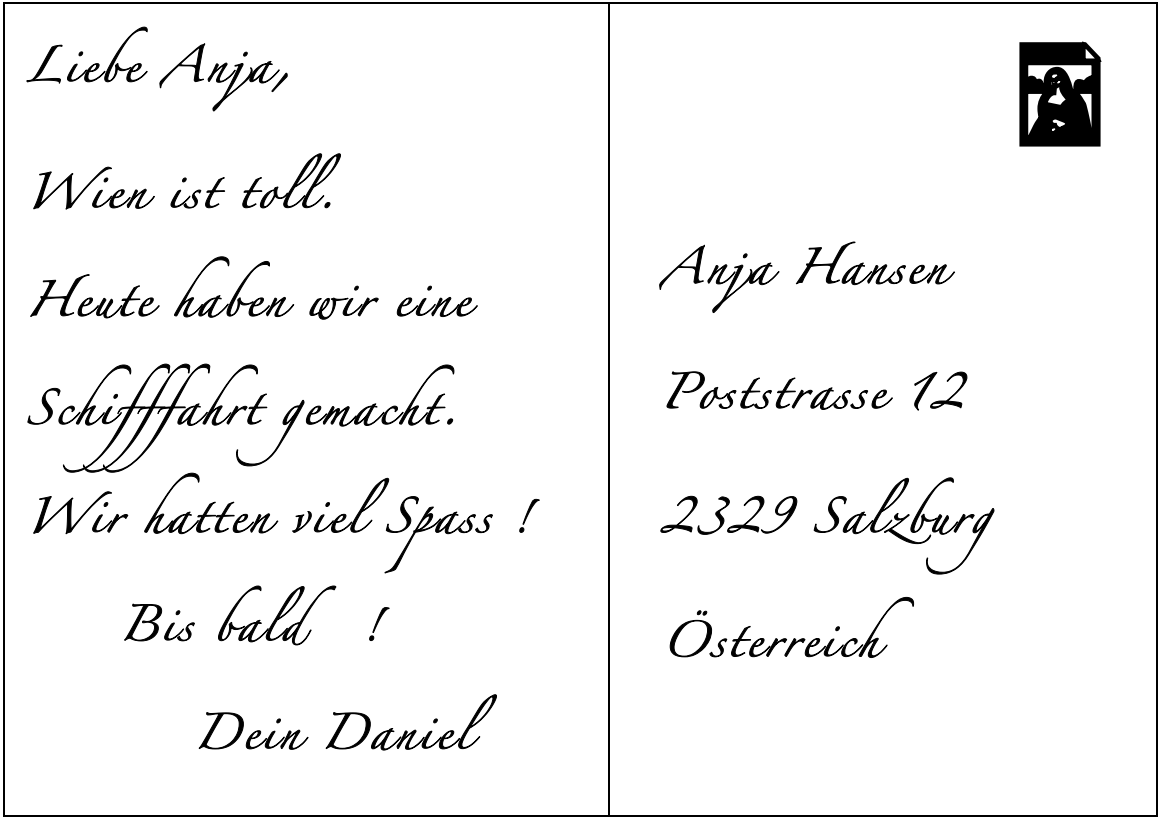 Liebe Anja,
Wien ist toll.
Heute haben wir eine
Schifffahrt gemacht.
Wir hatten viel Spass !
Bis bald !
Dein Daniel
Anja Hansen
Poststrasse 12
2329 Salzburg
Österreich